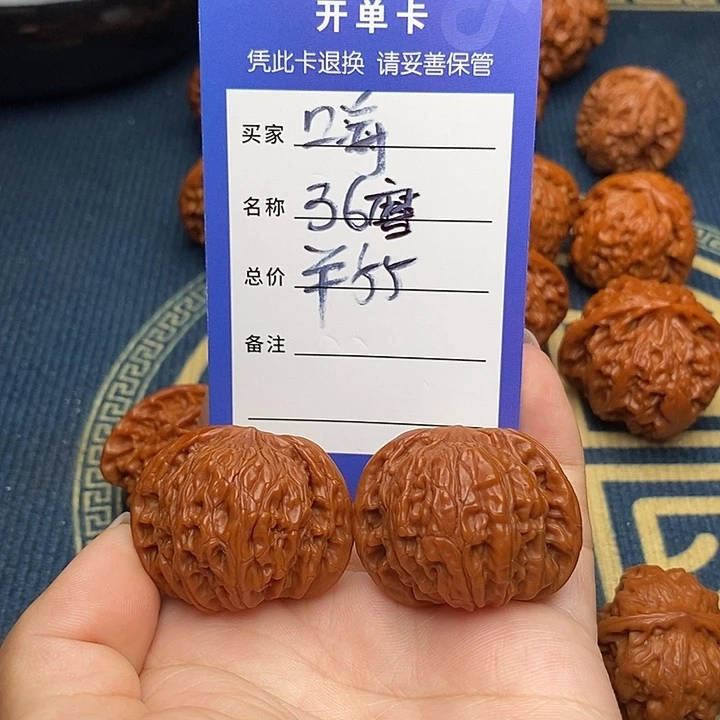 开单卡
凭此卡退换 请妥善保管
买家 嗨
名称 36磨
总价 羊55
备注